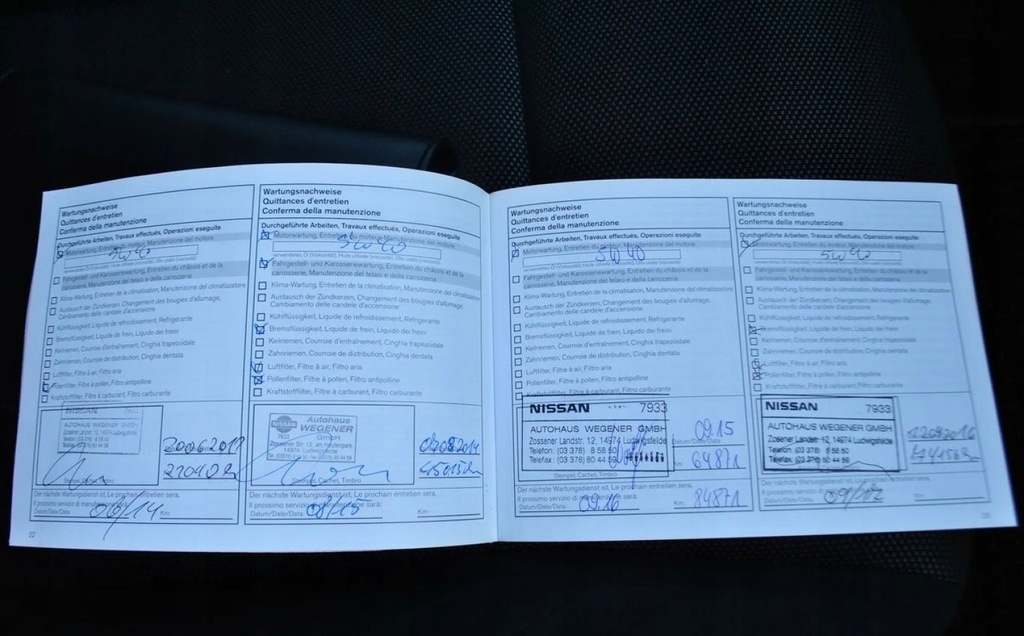 Wartungsnachweise
Quittances d'entretien
Conferma della manutenzione
Durchgeführte Arbeiten, Travaux effectués, Operazioni eseguite
Motorwartung, Entretien du moteur, Manutenzione del motore
5W40
Fahrgestell- und Karosseriewartung, Entretien du châssis et de la
carrosserie, Manutenzione del telaio e della carrozzeria
Klima-Wartung, Entretien de la climatisation, Manutenzione del climatizzatore
Austausch der Zündkerzen, Changement des bougies d'allumage,
Cambiamento delle candele d'accensione
Kühlflüssigkeit, Liquide de refroidissement, Refrigerante
Bremsflüssigkeit, Liquide de frein, Liquido dei freni
Keilriemen, Courroie d'entraînement, Cinghia trapezoidale
Zahnriemen, Courroie de distribution, Cinghia dentata
Luftfilter, Filtre à air, Filtro aria
Pollenfilter, Filtre à pollen, Filtro antipolline
Kraftstofffilter, Filtre à carburant, Filtro carburante
NISSAN 7933
AUTOHAUS WEGENER GMBH
Stempel, Cachet, Timbro
Der nächste Wartungsdienst ist, Le prochain entretien sera,
Il prossimo servizio di manutenzione sarà:
Datum/Date/Data:
Km:
22
Wartungsnachweise
Quittances d'entretien
Conferma della manutenzione
Durchgeführte Arbeiten, Travaux effectués, Operazioni eseguite
Motorwartung, Entretien du moteur, Manutenzione del motore
5W40
Fahrgestell- und Karosseriewartung, Entretien du châssis et de la
carrosserie, Manutenzione del telaio e della carrozzeria
Klima-Wartung, Entretien de la climatisation, Manutenzione del climatizzatore
Austausch der Zündkerzen, Changement des bougies d'allumage,
Cambiamento delle candele d'accensione
Kühlflüssigkeit, Liquide de refroidissement, Refrigerante
Bremsflüssigkeit, Liquide de frein, Liquido dei freni
Keilriemen, Courroie d'entraînement, Cinghia trapezoidale
Zahnriemen, Courroie de distribution, Cinghia dentata
Luftfilter, Filtre à air, Filtro aria
Pollenfilter, Filtre à pollen, Filtro antipolline
Kraftstofffilter, Filtre à carburant, Filtro carburante
NISSAN Autohaus
WEGENER
7933 GmbH
Zossener Str. 13, am Penderpark
14974 Ludwigsfelde
Stempel, Cachet, Timbro
Der nächste Wartungsdienst ist, Le prochain entretien sera,
Il prossimo servizio di manutenzione sarà:
Datum/Date/Data: 08/15
Km:
Wartungsnachweise
Quittances d'entretien
Conferma della manutenzione
Durchgeführte Arbeiten, Travaux effectués, Operazioni eseguite
Motorwartung, Entretien du moteur, Manutenzione del motore
5W40
Fahrgestell- und Karosseriewartung, Entretien du châssis et de la
carrosserie, Manutenzione del telaio e della carrozzeria
Klima-Wartung, Entretien de la climatisation, Manutenzione del climatizzatore
Austausch der Zündkerzen, Changement des bougies d'allumage,
Cambiamento delle candele d'accensione
Kühlflüssigkeit, Liquide de refroidissement, Refrigerante
Bremsflüssigkeit, Liquide de frein, Liquido dei freni
Keilriemen, Courroie d'entraînement, Cinghia trapezoidale
Zahnriemen, Courroie de distribution, Cinghia dentata
Luftfilter, Filtre à air, Filtro aria
Pollenfilter, Filtre à pollen, Filtro antipolline
Kraftstofffilter, Filtre à carburant, Filtro carburante
NISSAN 7933
AUTOHAUS WEGENER GMBH
Zossener Landstr. 12, 14974 Ludwigsfelde
Telefon: (03 378) 8 58 50
Telefax: (03 378) 80 44 59
09.15
Datum/Date/Data:
Km: 64871
Der nächste Wartungsdienst ist, Le prochain entretien sera,
Il prossimo servizio di manutenzione sarà:
Datum/Date/Data: 09.16
Km: 84871
Wartungsnachweise
Quittances d'entretien
Conferma della manutenzione
Durchgeführte Arbeiten, Travaux effectués, Operazioni eseguite
Motorwartung, Entretien du moteur, Manutenzione del motore
5W40
Fahrgestell- und Karosseriewartung, Entretien du châssis et de la
carrosserie, Manutenzione del telaio e della carrozzeria
Klima-Wartung, Entretien de la climatisation, Manutenzione del climatizzatore
Austausch der Zündkerzen, Changement des bougies d'allumage,
Cambiamento delle candele d'accensione
Kühlflüssigkeit, Liquide de refroidissement, Refrigerante
Bremsflüssigkeit, Liquide de frein, Liquido dei freni
Keilriemen, Courroie d'entraînement, Cinghia trapezoidale
Zahnriemen, Courroie de distribution, Cinghia dentata
Luftfilter, Filtre à air, Filtro aria
Pollenfilter, Filtre à pollen, Filtro antipolline
Kraftstofffilter, Filtre à carburant, Filtro carburante
NISSAN 7933
AUTOHAUS WEGENER GMBH
Zossener Landstr. 12, 14974 Ludwigsfelde
Telefon: (03 378) 8 58 50
Telefax: (03 378) 80 44 59
Der nächste Wartungsdienst ist, Le prochain entretien sera,
Il prossimo servizio di manutenzione sarà:
Datum/Date/Data: 09/17
Km: